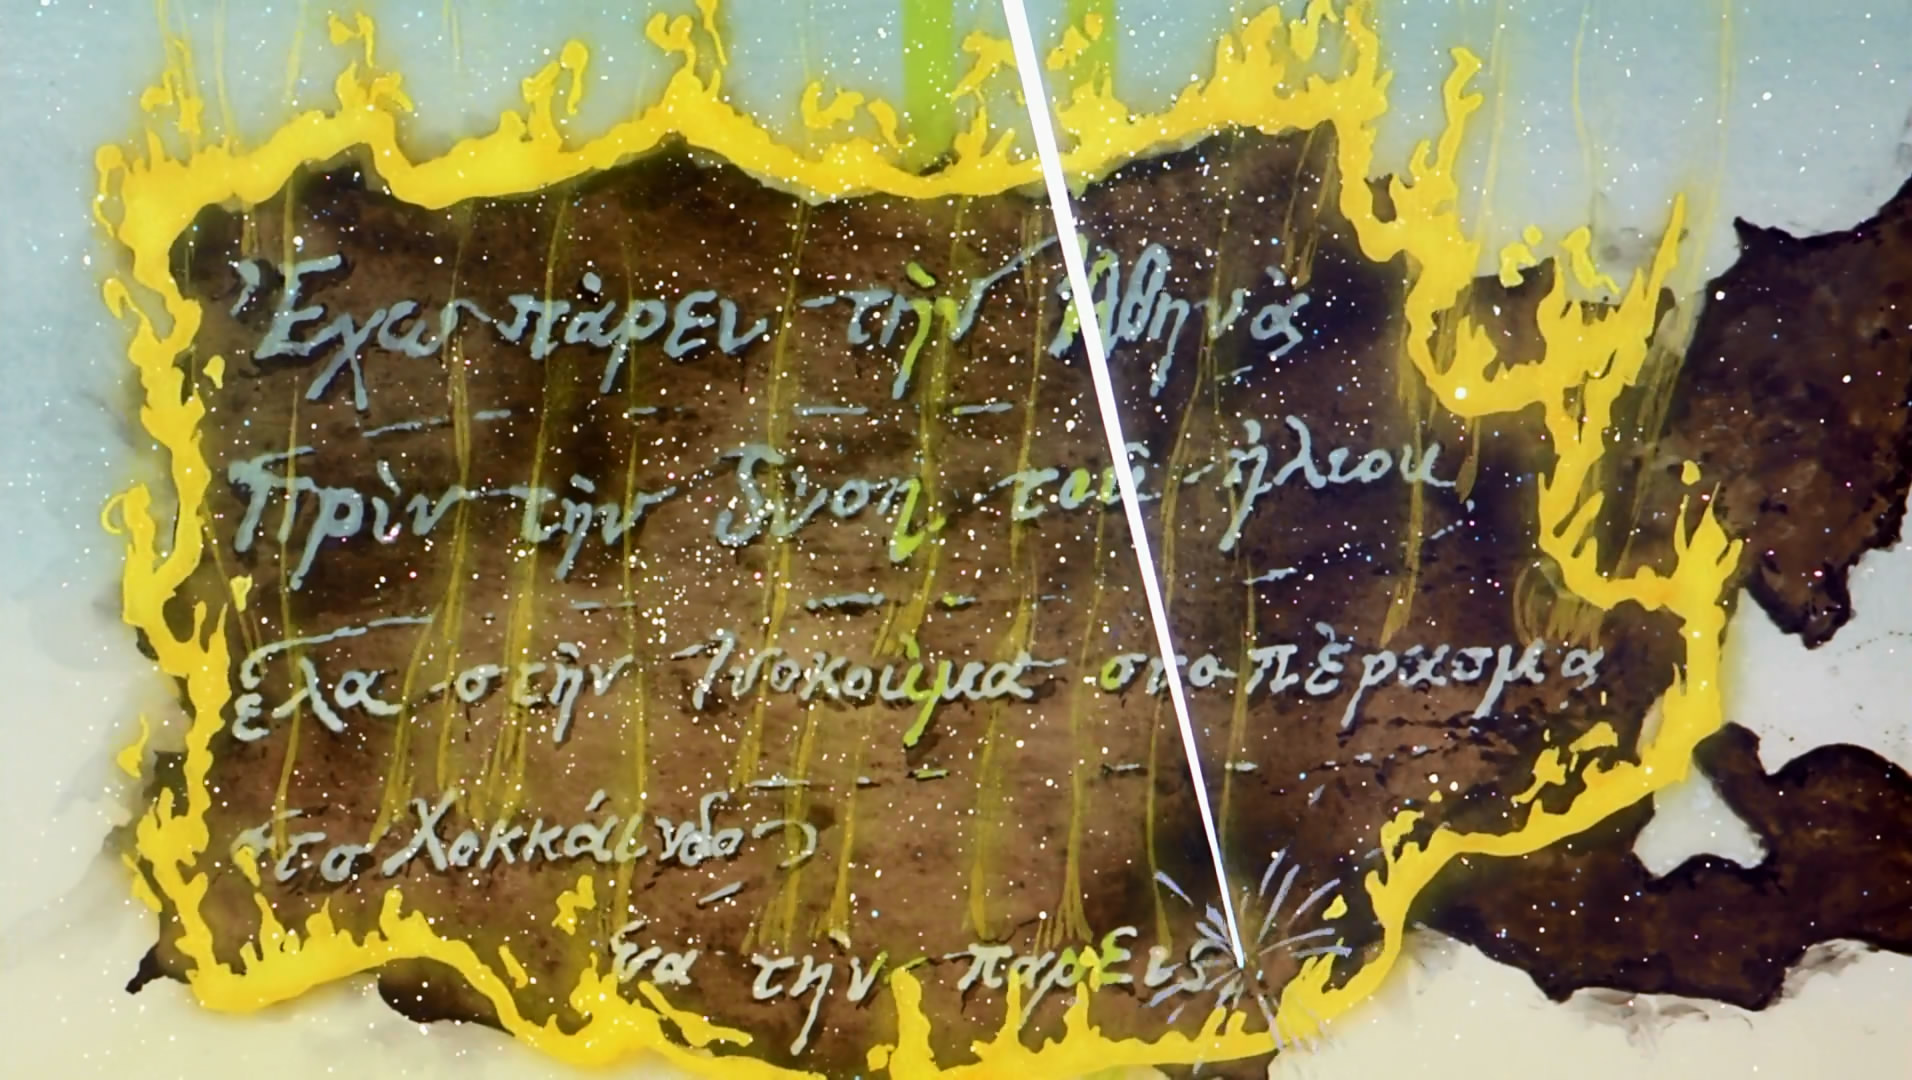 Ἔχω πάρει τὴν Ἀθηνὰ
Πρὶν τὴν δύση τοῦ ἡλιου
ἔλα στὴν Ἰνοκούμα στο πέρασμα
στο Χοκκάινδο
να τὴν παρεις